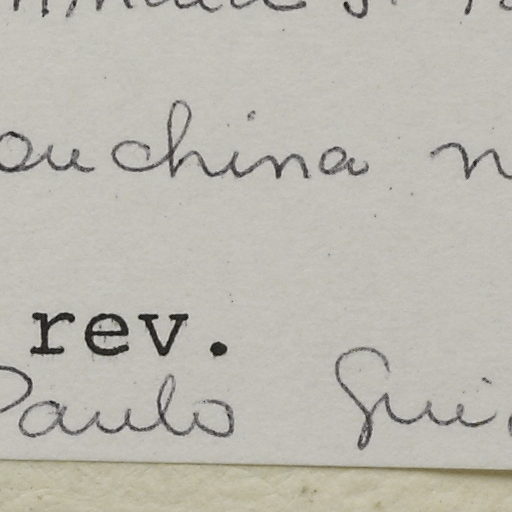 ouchina n
rev.
Paulo Gui